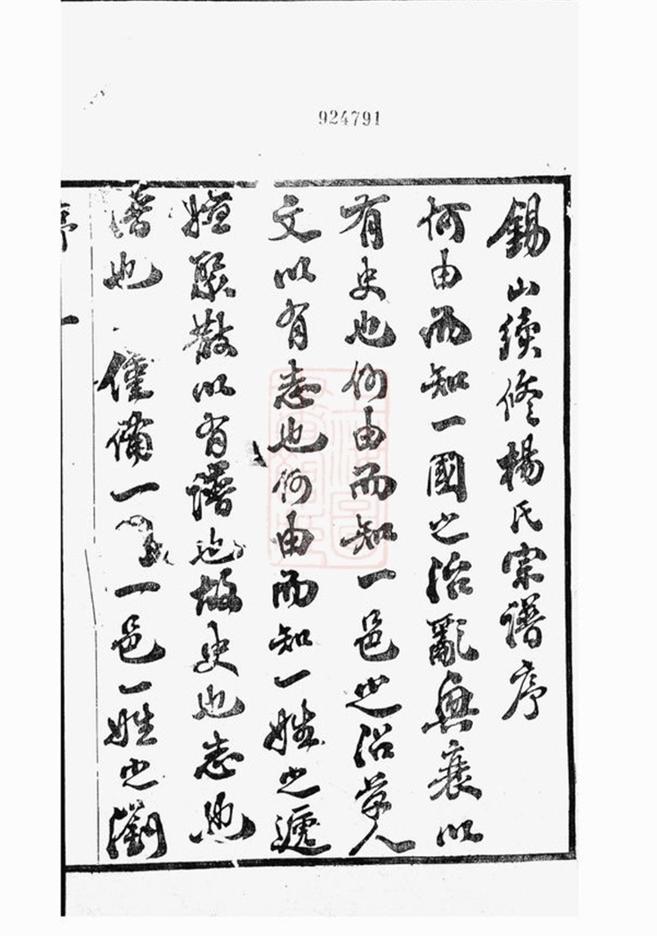 924791
錫山續修楊氏宗譜序
何由而知一國之治亂興衰以
有史也何由而知一邑之沿革人
文以有志也何由而知一姓之遞
嬗聚散以有譜也故史也志也
譜也 僅備一 一邑一姓之瀏
序 一